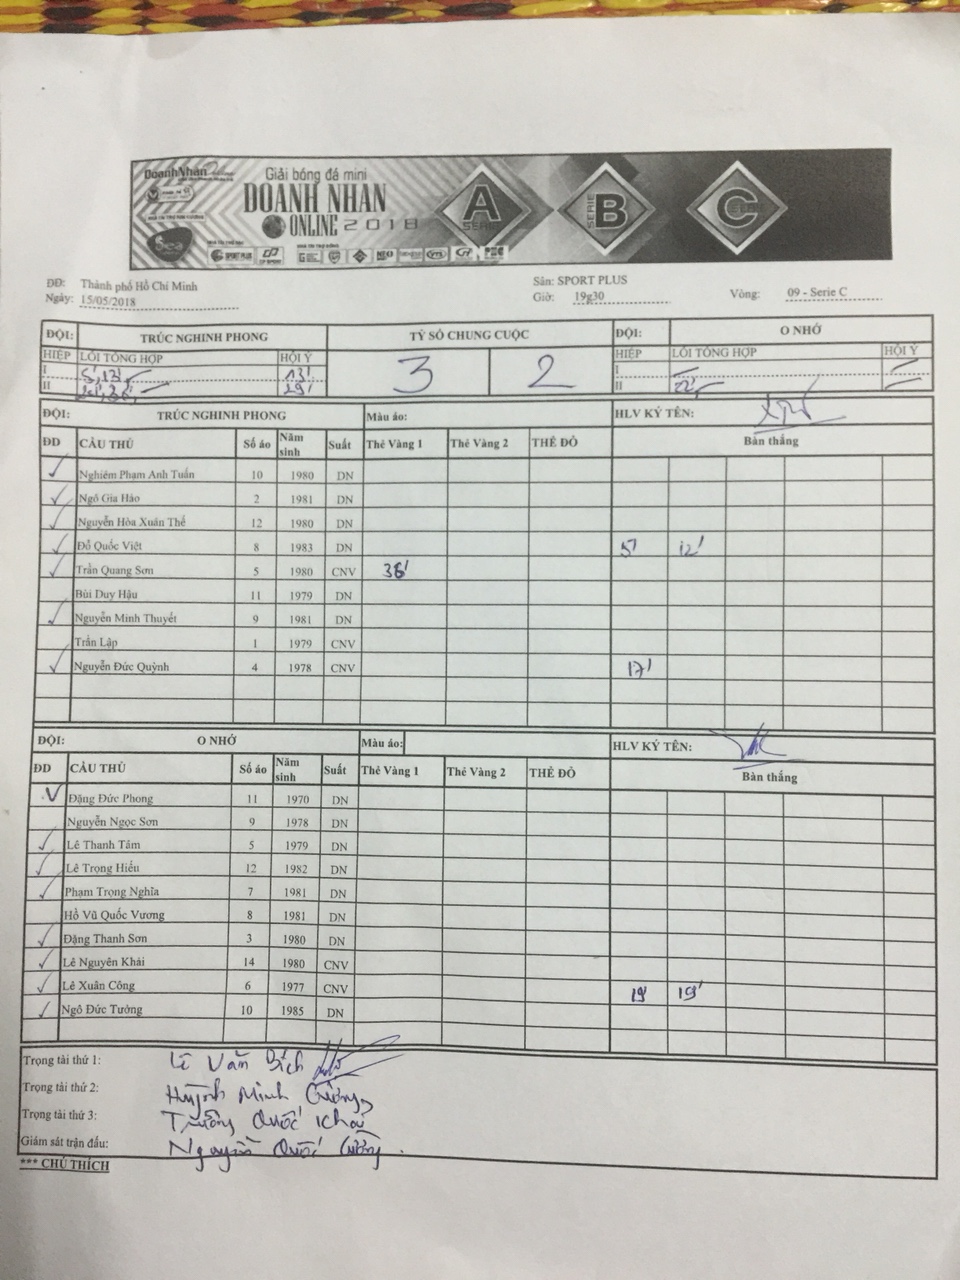 DoanhNhan
Giải bóng đá mini
DOANH NHAN
ONLINE 2018
SERIE A
SERIE B
SERIE C
SPORT PLUS
ĐĐ: Thành phố Hồ Chí Minh Sân: SPORT PLUS
Ngày: 15/05/2018 Giờ: 19g30 Vòng: 09 - Serie C
ĐỘI: TRÚC NGHINH PHONG TỶ SỐ CHUNG CUỘC ĐỘI: O NHỚ
HIỆP LỖI TỔNG HỢP HỘI Ý 3 2 HIỆP LỖI TỔNG HỢP HỘI Ý
I 5', 13' 13' I
II 29' II 22'
ĐỘI: TRÚC NGHINH PHONG Màu áo: HLV KÝ TÊN:
ĐD CẦU THỦ Số áo Năm sinh Suất Thẻ Vàng 1 Thẻ Vàng 2 THẺ ĐỎ Bàn thắng
✓ Nghiêm Phạm Anh Tuấn 10 1980 DN
✓ Ngô Gia Hào 2 1981 DN
✓ Nguyễn Hòa Xuân Thế 12 1980 DN
✓ Đỗ Quốc Việt 8 1983 DN 5' 12'
✓ Trần Quang Sơn 5 1980 CNV 36'
Bùi Duy Hậu 11 1979 DN
✓ Nguyễn Minh Thuyết 9 1981 DN
Trần Lập 1 1979 CNV
✓ Nguyễn Đức Quỳnh 4 1978 CNV 17'
ĐỘI: O NHỚ Màu áo: HLV KÝ TÊN:
ĐD CẦU THỦ Số áo Năm sinh Suất Thẻ Vàng 1 Thẻ Vàng 2 THẺ ĐỎ Bàn thắng
✓ Đặng Đức Phong 11 1970 DN
Nguyễn Ngọc Sơn 9 1978 DN
✓ Lê Thanh Tâm 5 1979 DN
✓ Lê Trọng Hiếu 12 1982 DN
✓ Phạm Trọng Nghĩa 7 1981 DN
Hồ Vũ Quốc Vương 8 1981 DN
✓ Đặng Thanh Sơn 3 1980 DN
✓ Lê Nguyên Khải 14 1980 CNV
✓ Lê Xuân Công 6 1977 CNV 19' 19'
✓ Ngô Đức Tưởng 10 1985 DN
Trọng tài thứ 1: Lê Văn Bích
Trọng tài thứ 2: Huỳnh Minh Cường
Trọng tài thứ 3: Trương Quốc Khải
Giám sát trận đấu: Nguyễn Quốc Cường
*** CHÚ THÍCH